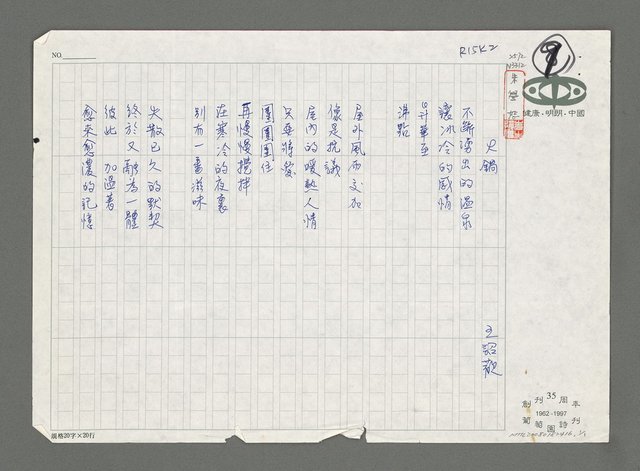 NO.
R15K2
9
健康·明朗·中國
火鍋
王
不斷湧出的溫泉
讓冰冷的感情
昇華至
沸點
屋外風雨交加
像是抗議
屋內的暖熱人情
只要將愛
團團圍住
再慢慢攪拌
在寒冷的夜裏
別有一番滋味
失散已久的默契
終於又融為一體
彼此 加溫著
愈來愈濃的記憶
創刊35周年
1962-1997
葡萄園詩刊
規格20字×20行